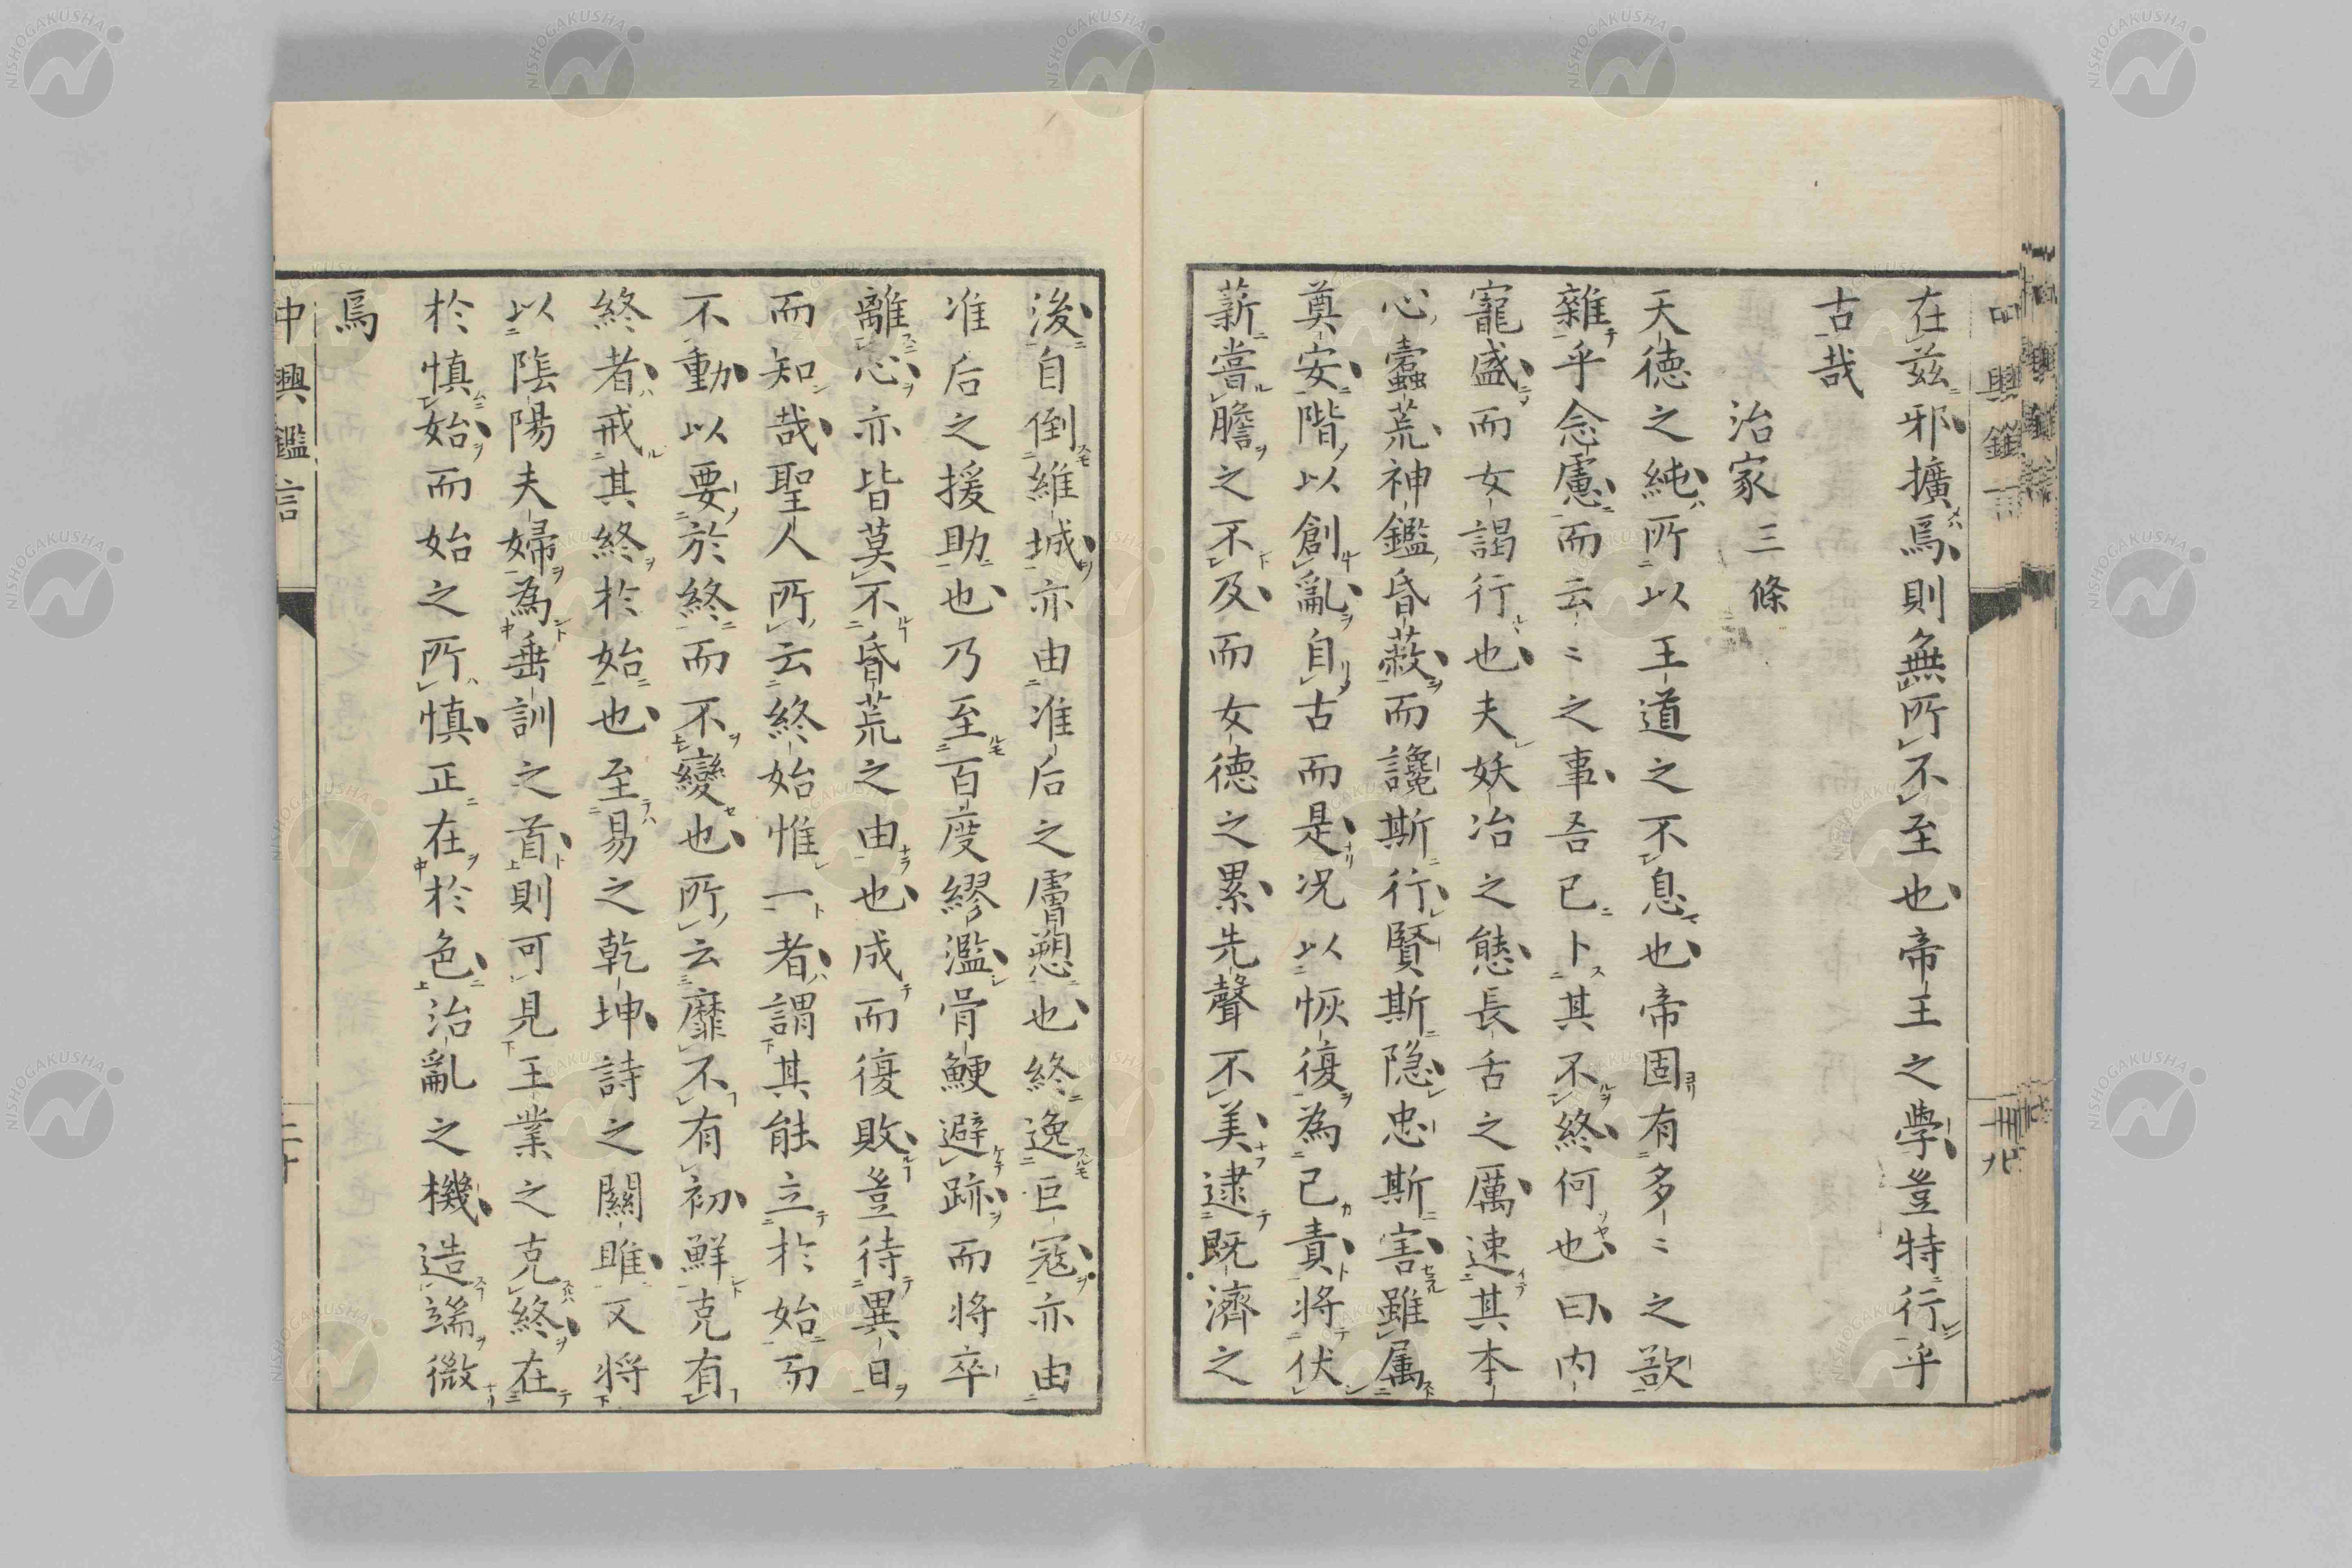 在茲邪擴焉則無所不至也帝王之學豈特行乎
古哉
治家三條
天德之純所以王道之不息也帝固有多〻之歆
雜乎念慮而云〻之事吾已卜其不終何也曰内
寵盛而女謁行也夫妖冶之態長舌之厲速其本
心蠹荒神鑑昏蔽而讒斯行賢斯隠忠斯害雖属
奠安階以創亂自古而是况以恢復為己責將伏
薪嘗膽之不及而女德之累先聲不美逮既濟之
後自倒維城亦由准后之膚愬也終逸巨寇亦由
准后之援助也乃至百度繆濫骨鯁避跡而将卒
離心亦皆莫不昏荒之由也成而復敗豈待異日
而知哉聖人所云終始惟一者謂其能立於始而
不動以要於終而不變也所云靡不有初鮮克有
終者戒其終於始也至易之乾坤詩之關雎又将
以陰陽夫婦為垂訓之首則可見王業之克終在
於慎始而始之所慎正在於色治亂之機造端微
焉
中興鑑言